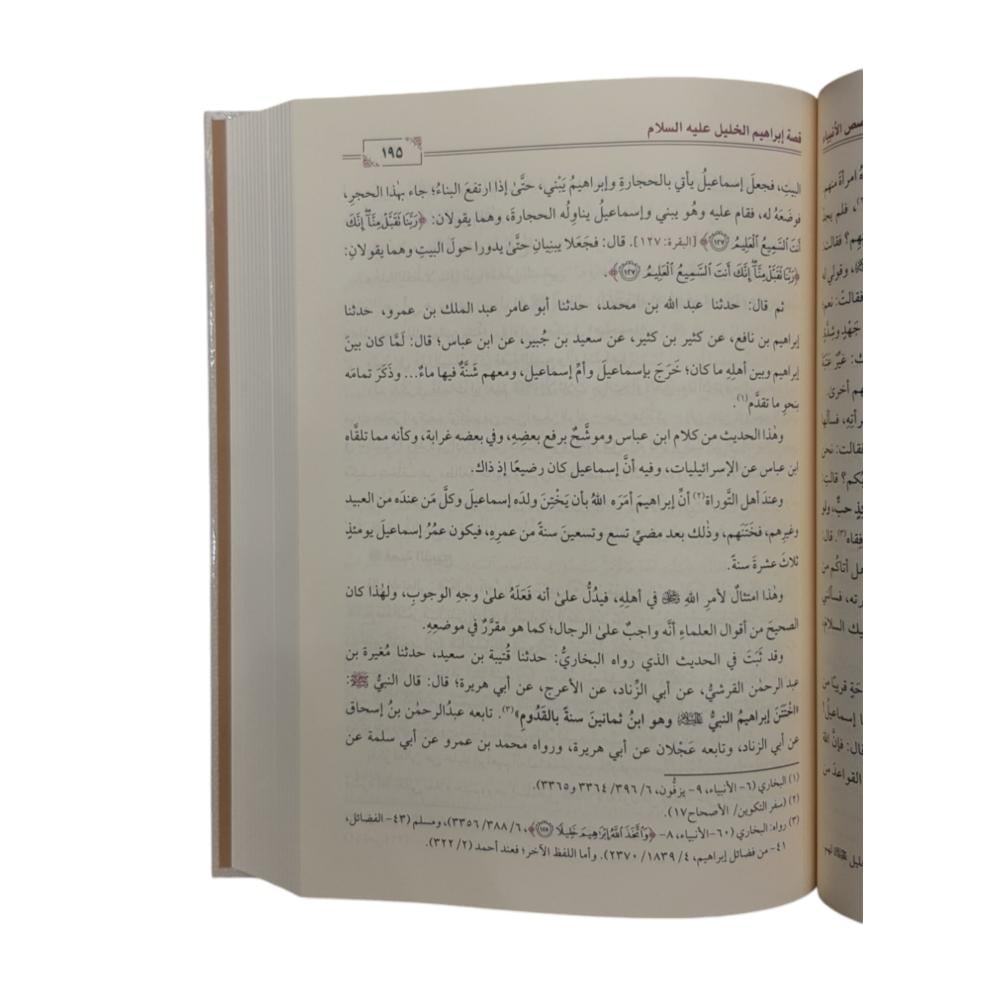 قصة إبراهيم الخليل عليه السلام
١٩٥
البيتِ، فجعلَ إسماعيلُ يأتي بالحجارةِ وإبراهيمُ يَبْني، حتَّىٰ إذا ارتفعَ البناءُ؛ جاء بهٰذا الحجرِ،
فوضَعَهُ له، فقام عليه وهُو يبني وإسماعيلُ يناوِلُه الحجارةَ، وهما يقولان: ﴿رَبَّنَا تَقَبَّلْ مِنَّآ إِنَّكَ
أَنتَ ٱلسَّمِيعُ ٱلْعَلِيمُ ١٢٧﴾ [البقرة: ١٢٧]. قال: فجَعَلا يبنيانِ حتَّىٰ يدورا حولَ البيتِ وهما يقولانِ:
﴿رَبَّنَا تَقَبَّلْ مِنَّآ إِنَّكَ أَنتَ ٱلسَّمِيعُ ٱلْعَلِيمُ ١٢٧﴾.
ثم قال: حدثنا عبد الله بن محمد، حدثنا أبو عامر عبد الملك بن عمرو، حدثنا
إبراهيم بن نافع، عن كثير بن كثير، عن سعيد بن جُبير، عن ابن عباس؛ قال: لَمَّا كان بينَ
إبراهيم وبين أهلِهِ ما كان؛ خَرَجَ بإسماعيلَ وأمِّ إسماعيل، ومعهم شَنَّةٌ فيها ماءٌ... وذَكَرَ تمامَه
بنحوِ ما تقدَّم(١).
وهٰذا الحديث من كلام ابن عباس وموشَّحٌ برفع بعضِهِ، وفي بعضه غرابة، وكأنه مما تلقَّاه
ابن عباس عن الإسرائيليات، وفيه أنَّ إسماعيل كان رضيعًا إذ ذاك.
وعندَ أهل التَّوراة(٢) أنَّ إبراهيمَ أمَرَه اللهُ بأن يَخْتِنَ ولدَه إسماعيلَ وكلَّ مَن عندَه من العبيد
وغيرِهم، فخَتَنَهم، وذٰلك بعد مضيِّ تسع وتسعينَ سنةً من عمرِهِ، فيكون عمُرُ إسماعيلَ يومئذٍ
ثلاثَ عشرةَ سنةً.
وهٰذا امتثالٌ لأمرِ اللهِ ﷻ في أهلِهِ، فيدُلُّ علىٰ أنه فَعَلَهُ علىٰ وجهِ الوجوبِ، ولهٰذا كان
الصحيحَ من أقوال العلماءِ أنَّه واجبٌ علىٰ الرجالِ؛ كما هو مقرَّرٌ في موضعِهِ.
وقد ثَبَتَ في الحديث الذي رواه البخاريُّ: حدثنا قُتيبة بن سعيد، حدثنا مُغيرة بن
عبد الرحمٰن القرشيُّ، عن أبي الزِّناد، عن الأعرج، عن أبي هريرة؛ قال: قال النبيُّ ﷺ:
«اخْتَتَنَ إبراهيمُ النبيُّ ﷺ وهو ابنُ ثمانينَ سنةً بالقَدُومِ»(٣). تابعه عبدُالرحمٰن بنُ إسحاق
عن أبي الزناد، وتابعه عَجْلان عن أبي هريرة، ورواه محمد بن عمرو عن أبي سلمة عن
(١) البخاري (٦- الأنبياء، ٩- يزفُّون، ٦/ ٣٩٦/ ٣٣٦٤ و٣٣٦٥).
(٢) (سفر التكوين/ الأصحاح١٧).
(٣) رواه: البخاري (٦٠-الأنبياء، ٨- ﴿وَٱتَّخَذَ ٱللَّهُ إِبْرَٰهِيمَ خَلِيلًا ١٢٥﴾، ٦/ ٣٨٨/ ٣٣٥٦)، ومسلم (٤٣- الفضائل،
٤١- من فضائل إبراهيم، ٤/ ١٨٣٩/ ٢٣٧٠). وأما اللفظ الآخر؛ فعند أحمد (٢/ ٣٢٢).